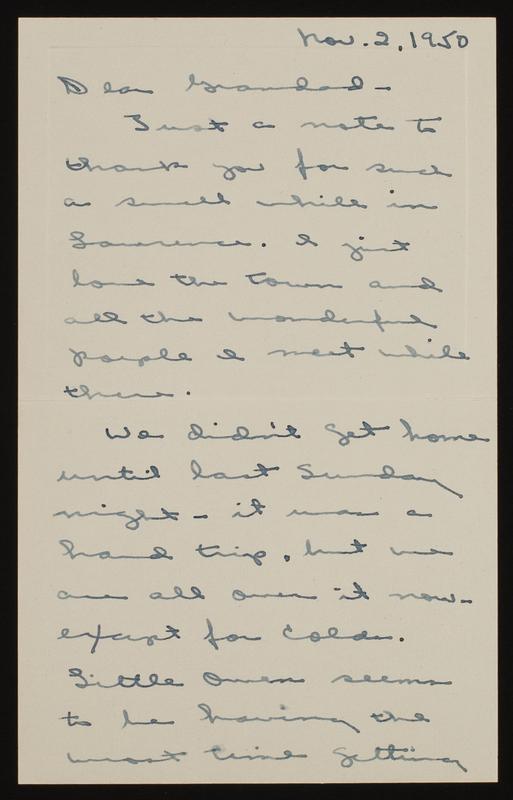 Nov. 2, 1950
Dear Grandad -
Just a note to
thank you for such
a swell while in
Lawrence. I just
love the town and
all the wonderful
people I meet while
there.
We didn't get home
until last Sunday
night - it was a
hard trip, but we
are all over it now -
except for colds.
Little Owen seems
to be having the
worst time getting